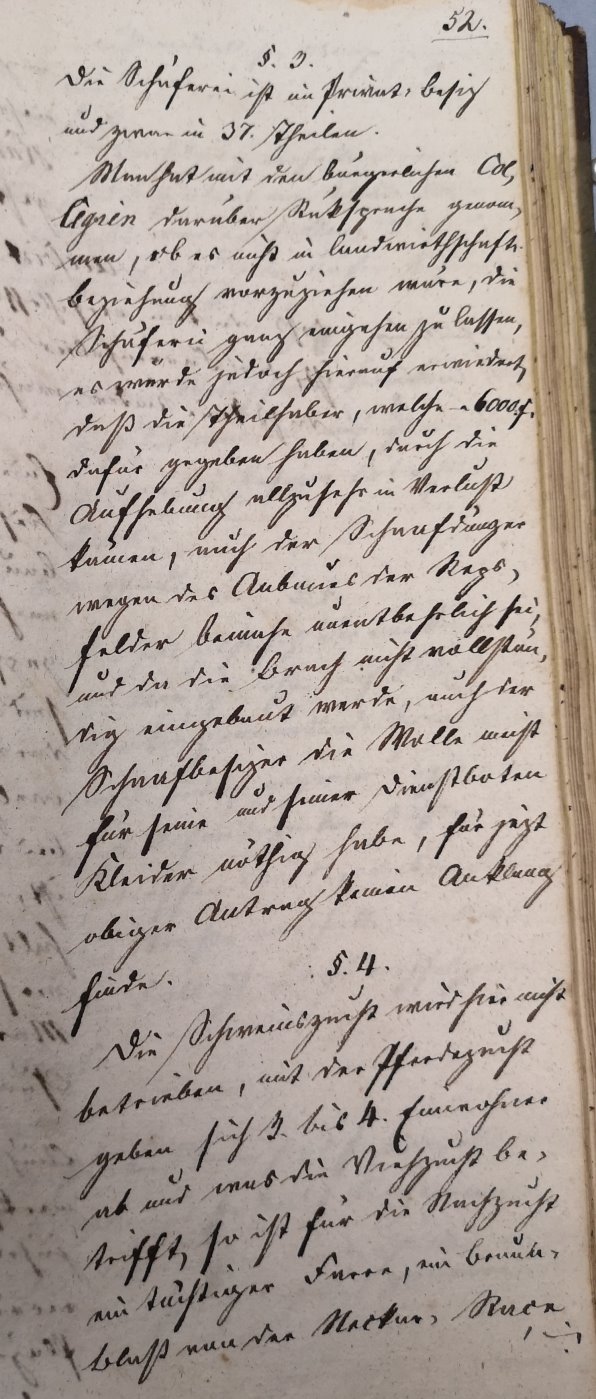 52.
§. 3.
Die Schäferei ist im Privat-Besiz
und zwar in 37. Theilen.
Man hat mit den bürgerlichen Col-
legien darüber Rüksprache genom-
men, ob es nicht in landwirthschaftl.
Beziehung vorzuziehen wäre, die
Schäferei ganz eingehen zu lassen,
es wurde jedoch hierauf erwiedert,
daß die Theilhaber, welche 6000 f.
dafür gegeben haben, durch die
Aufhebung allzusehr in Verlust
kämen, auch der Schaafdünger
wegen des Anbaues der Reps-
felder beinahe unentbehrlich sei,
und da die Brach nicht vollstän-
dig eingebaut werde, auch der
Schaafbesizer die Wolle meist
für seine und seiner Dienstboten
Kleider nöthig habe, für jezt
obiger Antrag keinen Anklang
finde.
§. 4.
Die Schweinszucht wird hier nicht
betrieben, mit der Pferdezucht
geben sich 3. bis 4. Einwohner
ab und was die Viehzucht be-
trifft, so ist für die Nachzucht
ein tüchtiger Farre, ein Braun-
blaß von der Neckar-Race